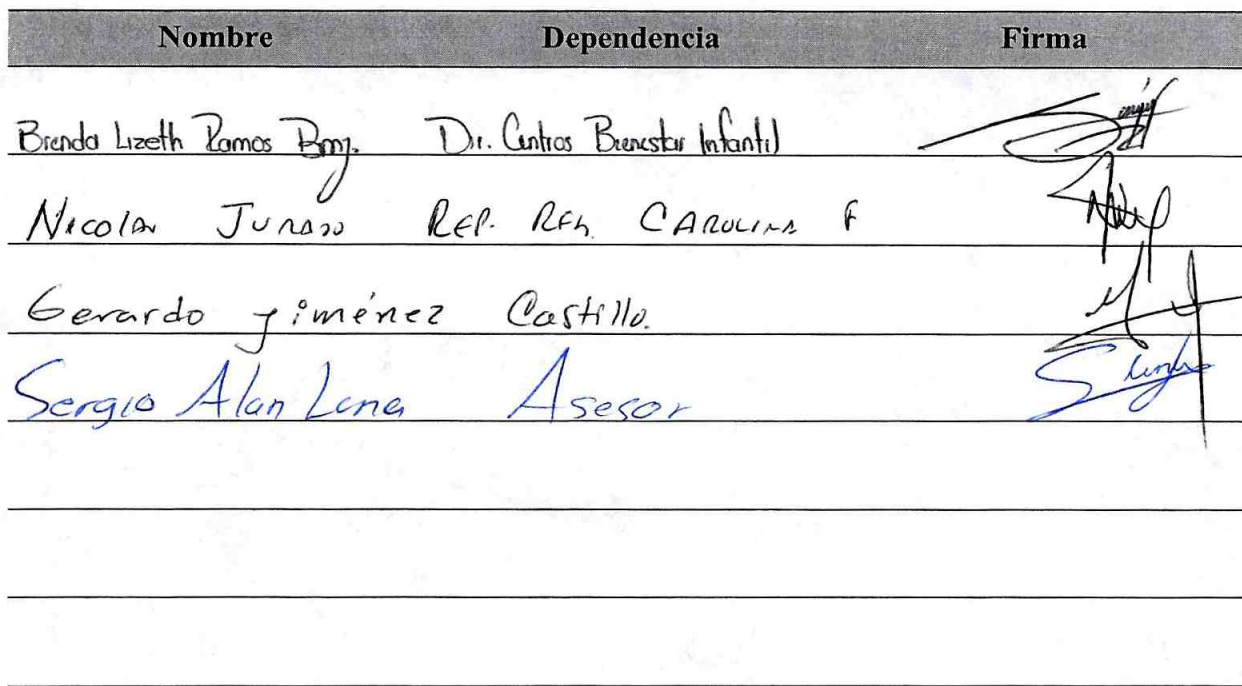 Nombre Dependencia Firma
Brenda Lizeth Ramos Dir. Centros Bienestar Infantil
Nicolas Jurado REP. REG. CAROLINA F
Gerardo Jiménez Castillo.
Sergio Alan Luna Asesor